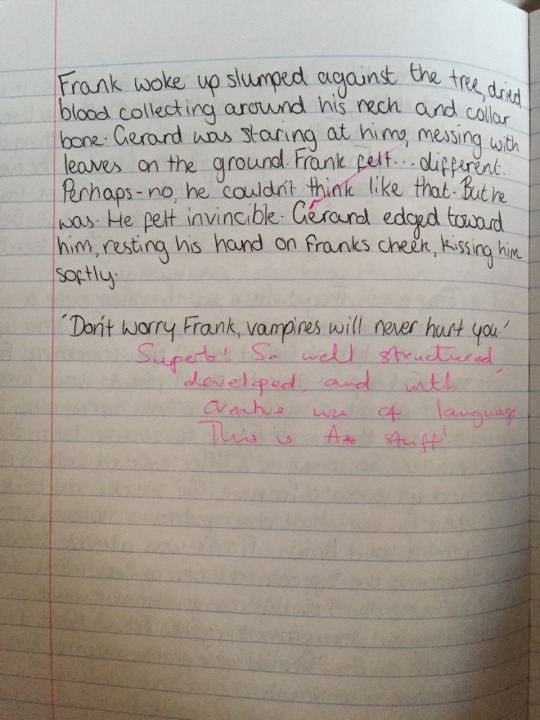 Frank woke up slumped against the tree, dried
blood collecting around his neck and collar
bone. Gerard was staring at him, messing with
leaves on the ground. Frank felt... different.
Perhaps - no, he couldn't think like that. But he
was. He felt invincible. Gerard edged toward
him, resting his hand on Franks cheek, kissing him
softly.
'Don't worry Frank, vampires will never hurt you.'
Superb! So well structured,
developed, and with
creative use of language
This is A* stuff!